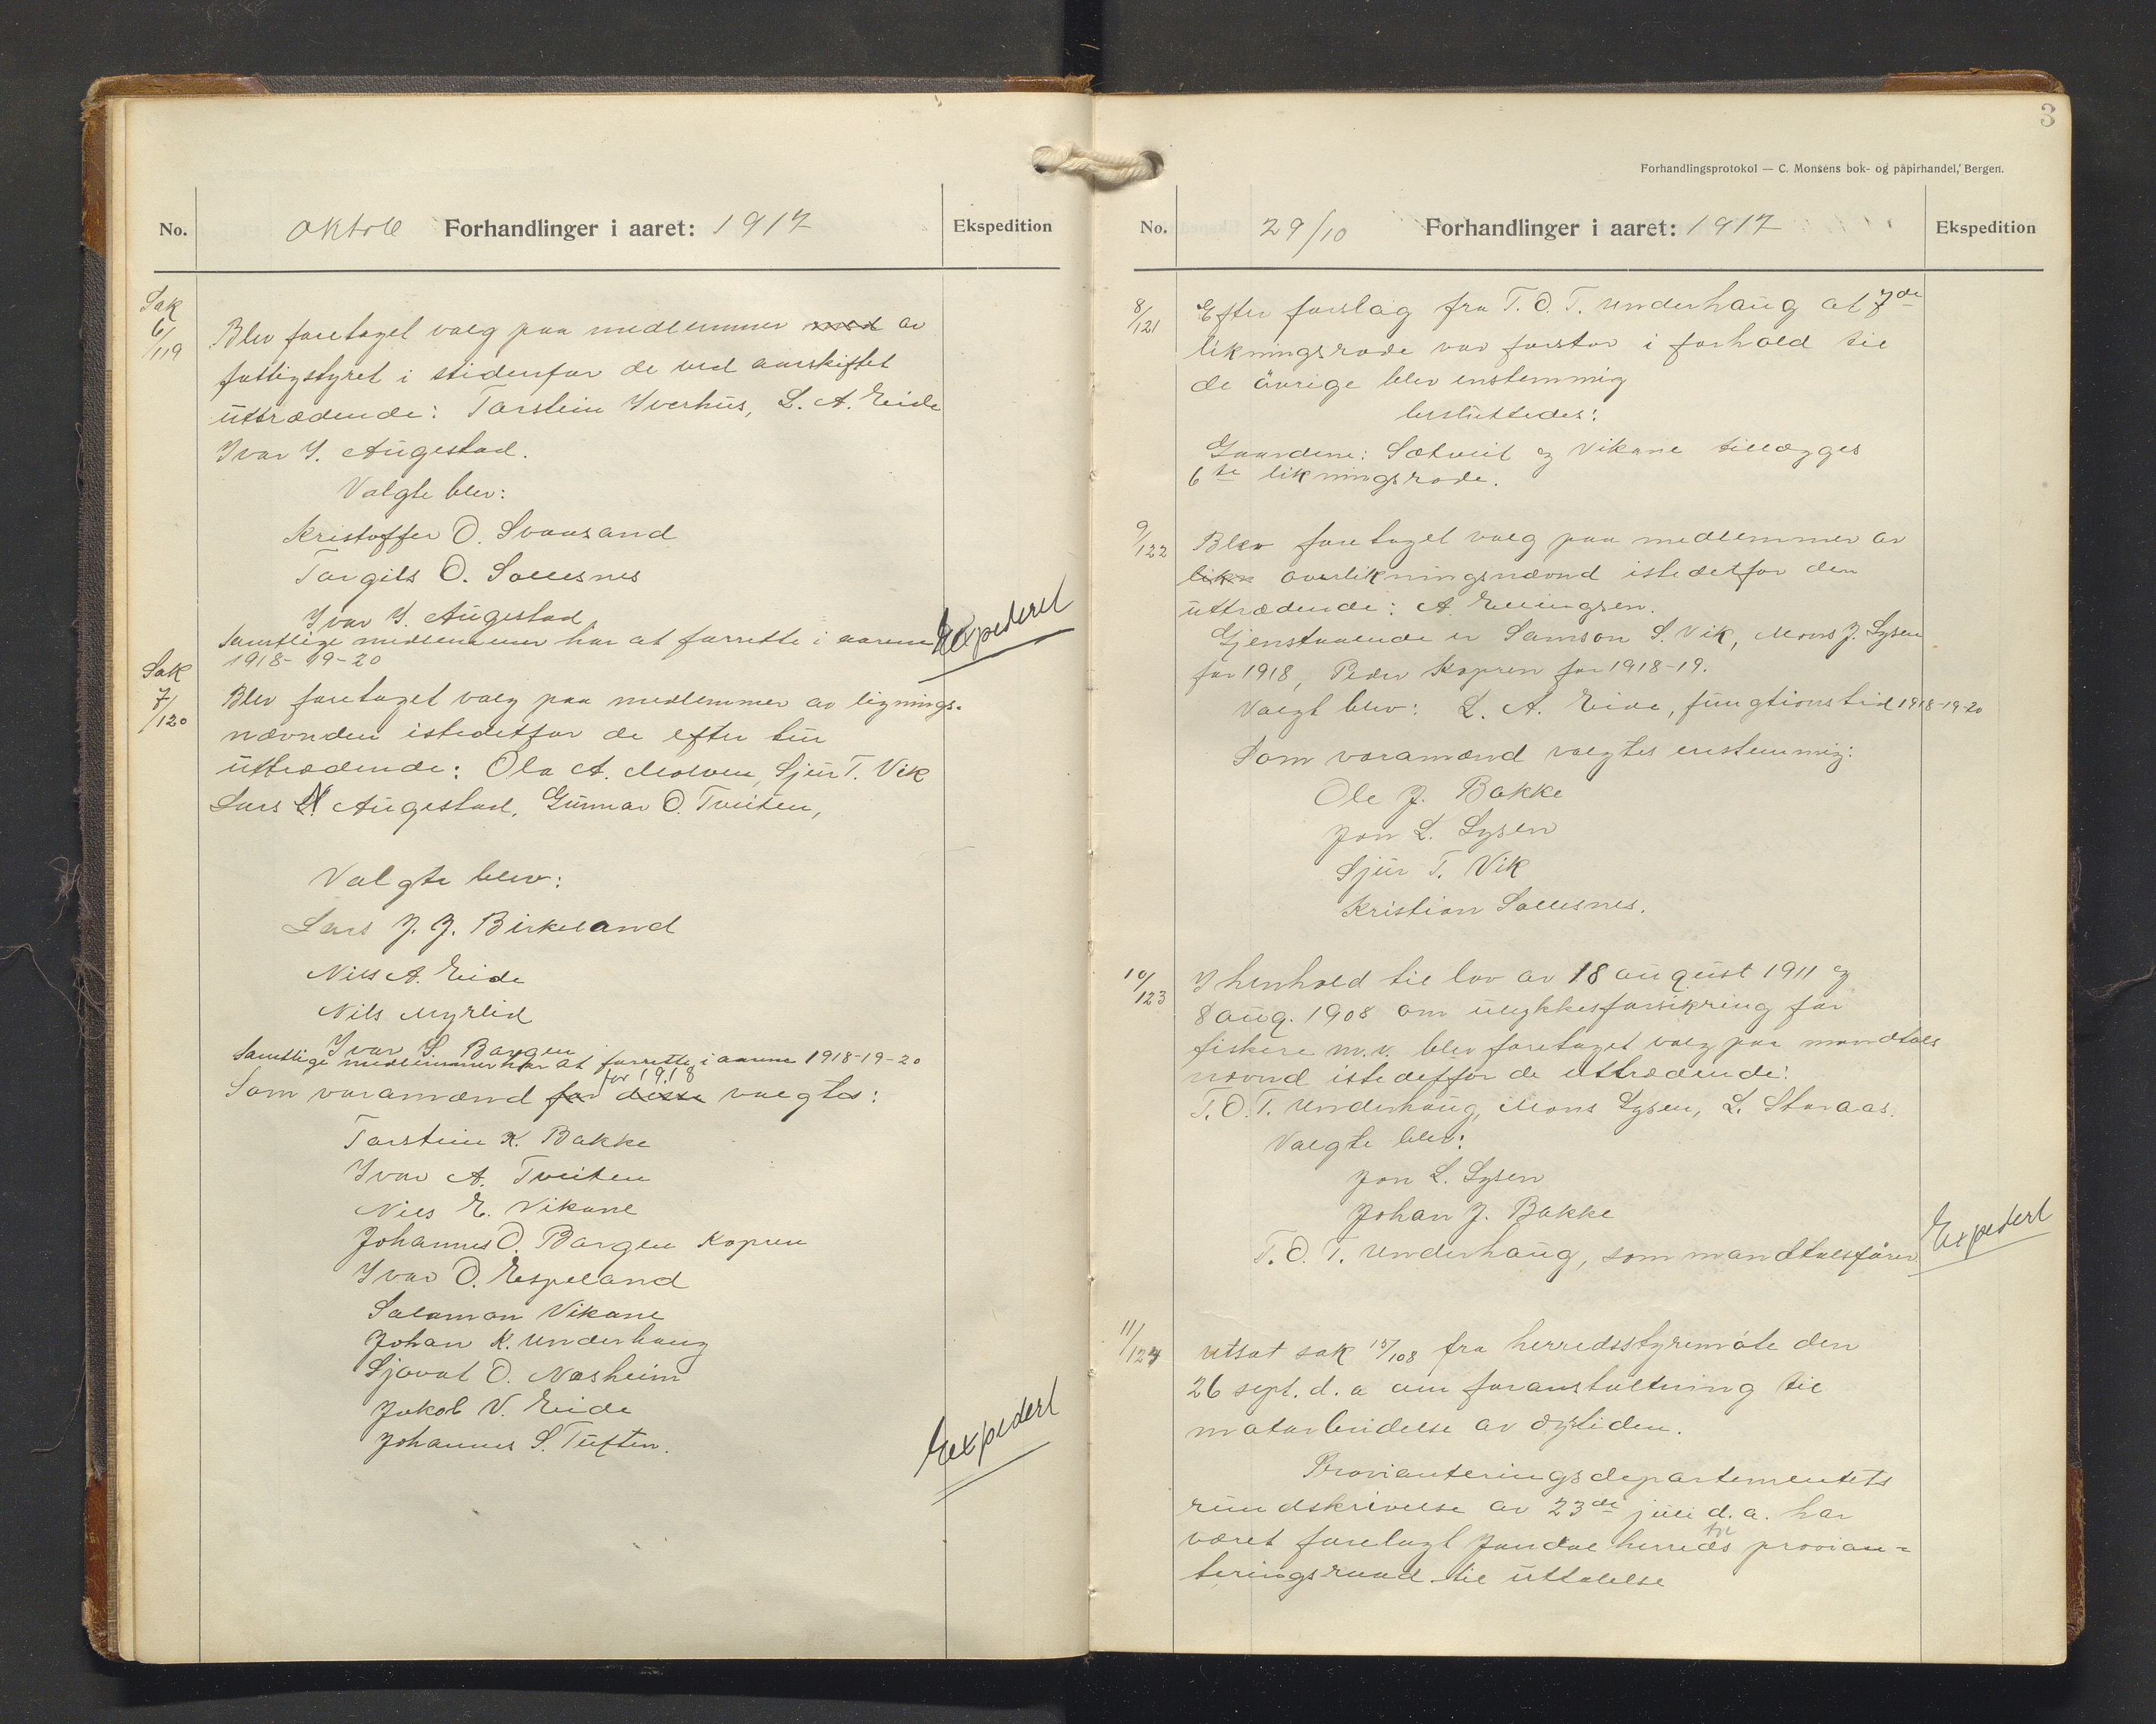 No.
Oktob Forhandlinger i aaret: 1917
Ekspedition
Sak
6/119
Blev foretaget valg paa medlemmer med av
fattigstyret i stidenfor de ved aarskiftet
uttrædende: Torstein Yverhus, L. A. Eide
Ivar I. Augestad.
Valgte blev:
Kristoffer O. Svaasand
Torgils O. Sollesnes
Ivar I. Augestad
Samtlige medlemmer har at forrette i aarene
1918-19-20
Expedert
Sak
7/120
Blev foretaget valg paa medlemmer av lignings-
nævnden istedetfor de efter tur
uttrædende: Ola A. Molven, Sjur T. Vik
Lars N. Augestad, Gunnar O. Tveiten,
Valgte blev:
Lars J. J. Birkeland
Nils A. Eide
Nils Myrlid
Ivar S. Bargen
Samtlige medlemmer har at forrette i aarene 1918-19-20
for 1918
Som varamænd for disse valgtes:
Torstein K. Bakke
Ivar A. Tveiten
Nils E. Vikane
Johannes O. Bargen Kopren
Ivar O. Espeland
Salamon Vikane
Johan K. Underhaug
Sjovat O. Næsheim
Jakob V. Eide
Johannes S. Tuften.
Expedert
3
Forhandlingsprotokol — C. Monsens bok- og papirhandel, Bergen.
No.
29/10 Forhandlinger i aaret: 1917
Ekspedition
8/121
Efter forslag fra T. O. T. Underhaug at 7de
likningsrode var forstor i forhold til
de øvrige blev enstemmig
besluttedes:
Gaardene: Sætveit og Vikane tillægges
6te likningsrode.
9/122
Blev foretaget valg paa medlemmer av
likn overlikningsnævnd istedetfor den
uttrædende: A. Ellingsen.
Gjenstaaende er Samson S. Vik, Mons J. Lysen
for 1918, Peder Kopren for 1918-19.
Valgt blev: L. A. Eide, fungtionstid 1918-19-20
Som varamænd valgtes enstemmig:
Ole J. Bakke
Jon L. Lysen
Sjur T. Vik
Kristian Sollesnes.
10/123
I henhold til lov av 18 august 1911 og
8 aug. 1908 om ulykkesforsikring for
fiskere m.v. blev foretaget valg paa mandtals
nævnd istedetfor de uttrædende:
T. O. T. Underhaug, Mons Lysen, L. Storaas.
Valgte blev:
Jon L. Lysen
Johan J. Bakke
T. O. T. Underhaug, som mandtalsfører
Expedert
11/124
Utsat sak 15/108 fra herredsstyremøte den
26 sept. d. a om foranstaltning til
matarbeidelse av dyrtiden.
Provianteringsdepartementets
rundskrivelse av 23de juli d. a. har
været forelagt Jondal herreds provian=
teringsraad til uttalelse